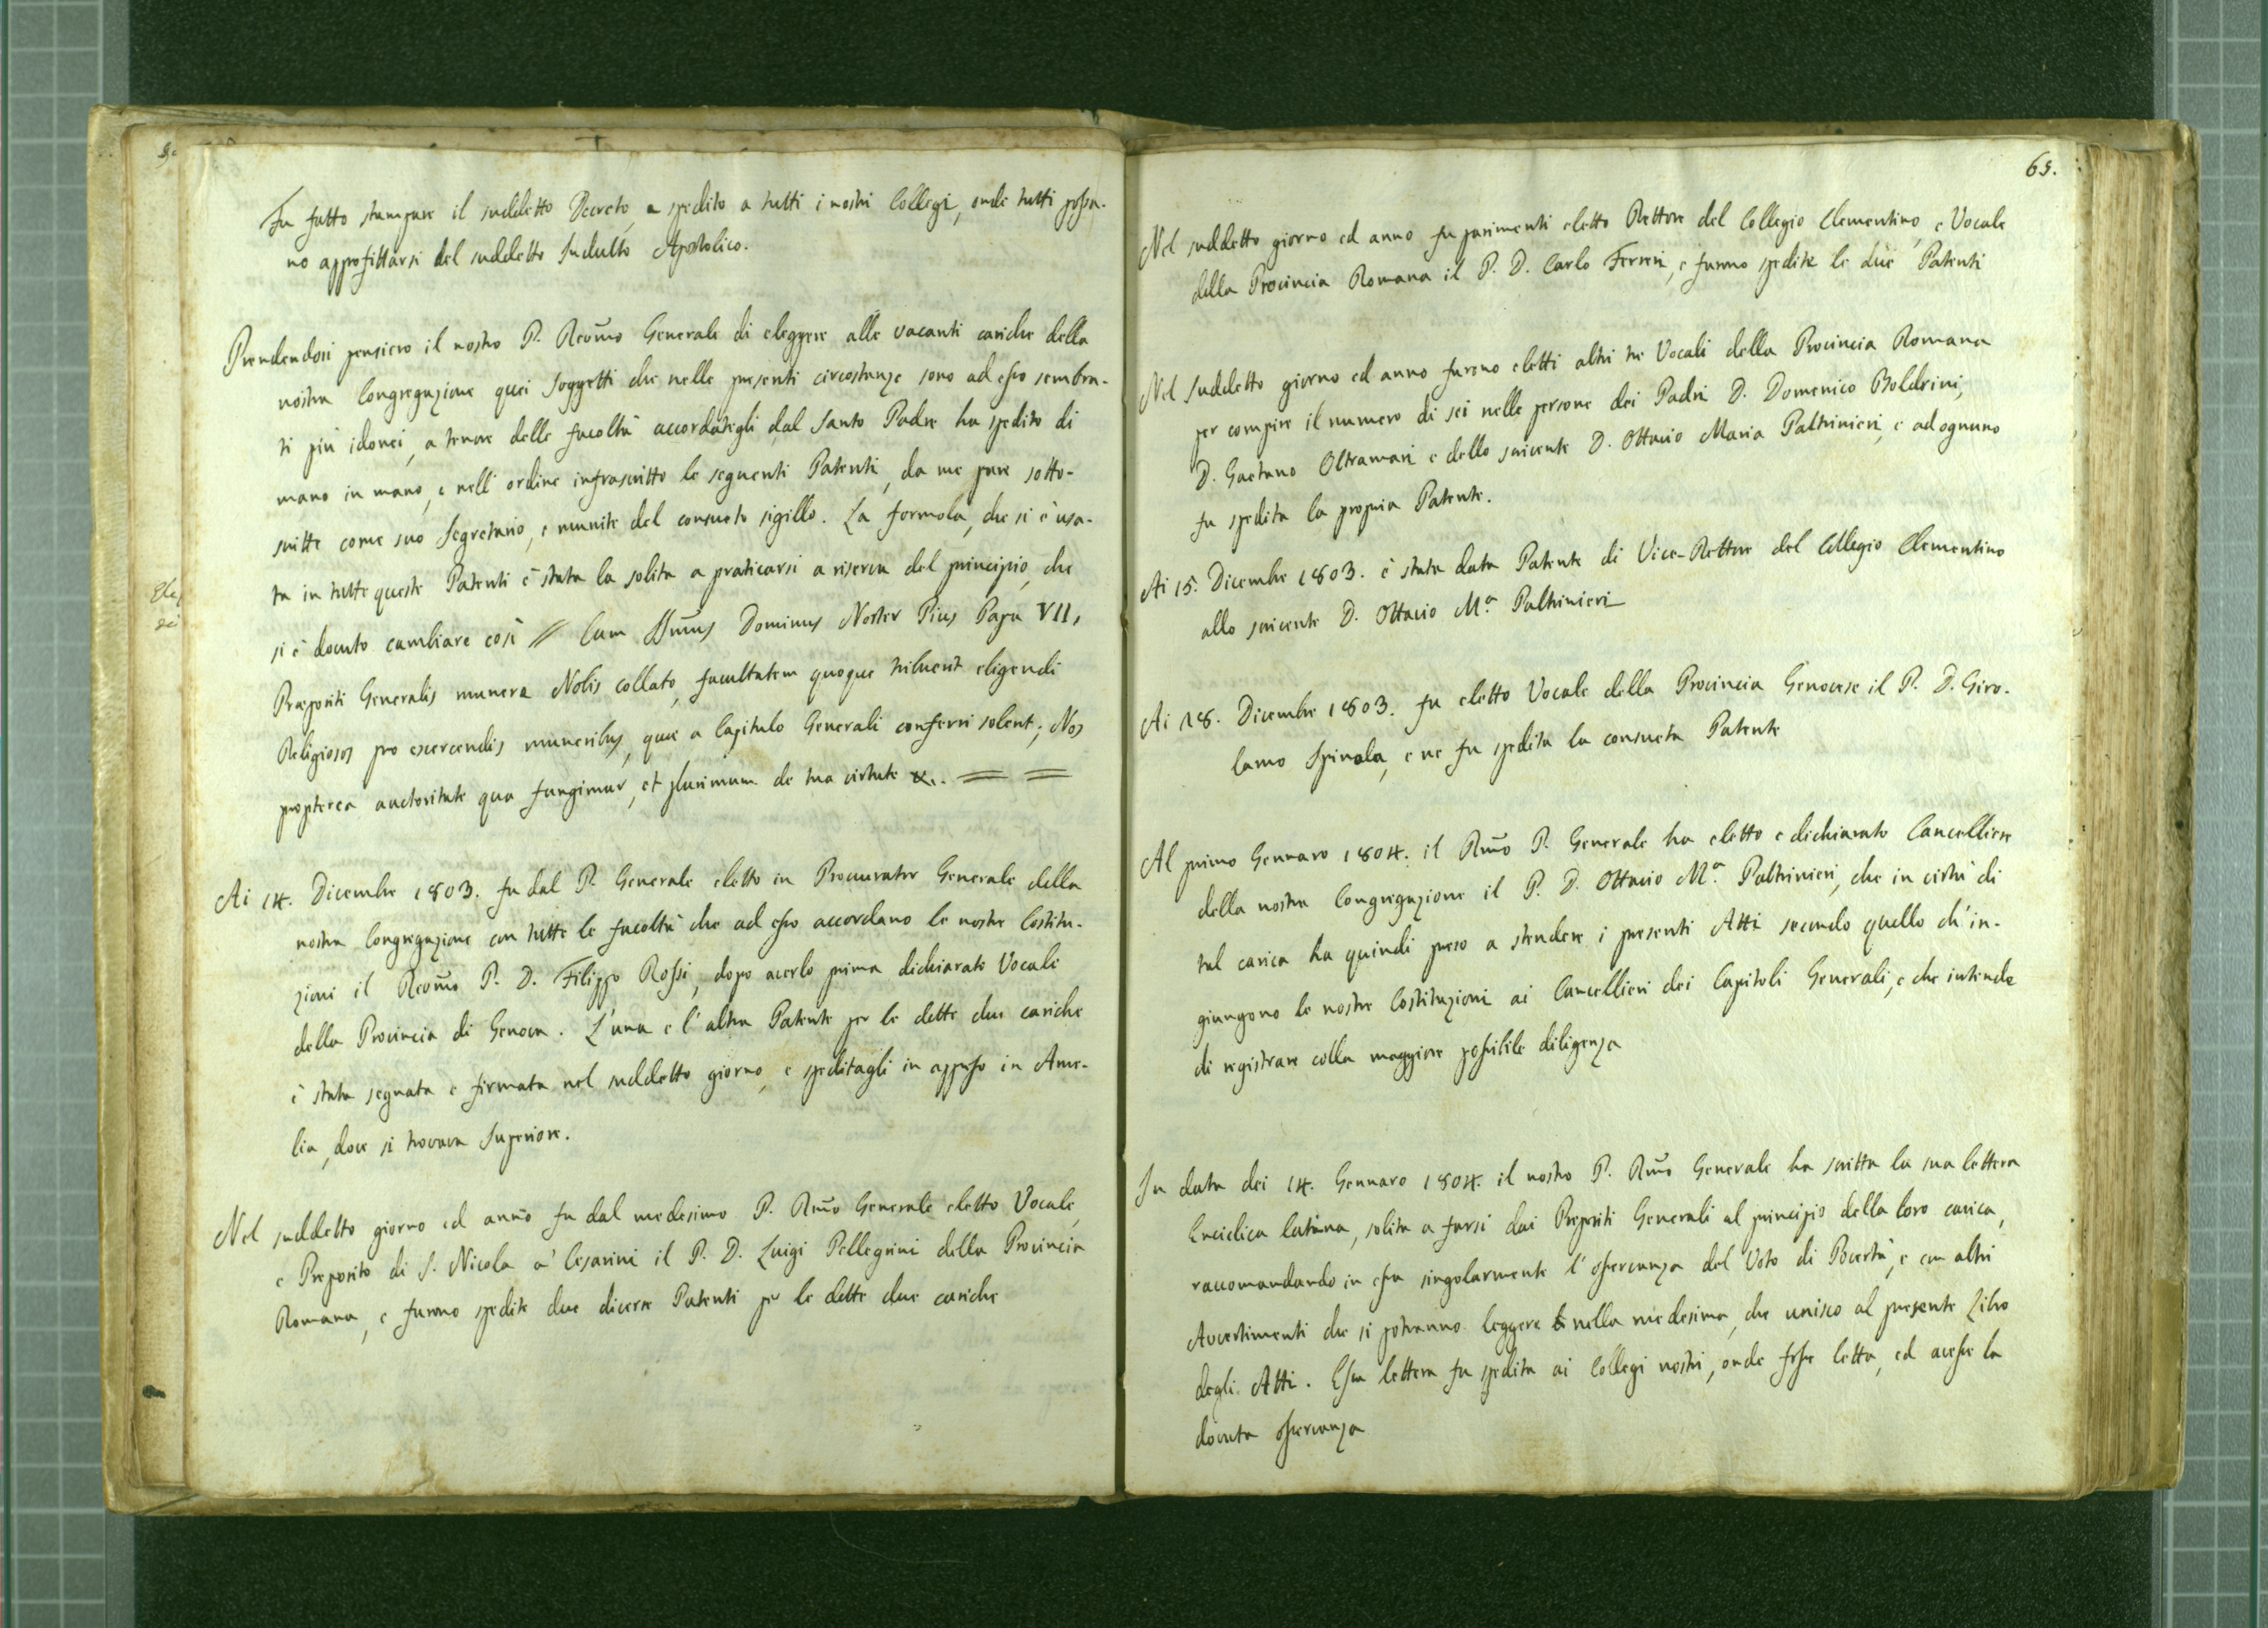 Fu fatto stampare il suddetto Decreto, e spedito a tutti i nostri Collegi, onde tutti possa-
no approfittarsi del suddetto Indulto Apostolico.
Prendendosi pensiero il nostro P. Revm̃o Generale di eleggere alle vacanti cariche della
nostra Congregazione quei Soggetti che nelle presenti circostanze sono ad esso sembra-
ti più idonei, a tenore delle facoltà accordategli dal Santo Padre ha spedito di
mano in mano, e nell'ordine infrascritto le seguenti Patenti, da me pure sotto-
scritte come suo Segretario, e munite del consueto sigillo. La formola, che si è usa-
ta in tutte queste Patenti è stata la solita a praticarsi a riserva del principio, che
si è dovuto cambiare così // Cum SSm̃us Dominus Noster Pius Papa VII,
Præpositi Generalis munere Nobis collato, facultatem quoque tribuerit eligendi
Religiosos pro exercendis muneribus, quæ a Capitulo Generali conferri solent; Nos
propterea auctoritate qua fungimur, et plurimum de tua virtute &.. = =
Ai 14. Dicembre 1803. fu dal P. Generale eletto in Procurator Generale della
nostra Congregazione con tutte le facoltà che ad esso accordano le nostre Costitu-
zioni il Revm̃o P. D. Filippo Rossi, dopo averlo prima dichiarato Vocale
della Provincia di Genova. L'una e l'altra Patente per le dette due cariche
è stata segnata e firmata nel suddetto giorno, e speditagli in appresso in Ame-
lia, dove si trovava Superiore.
Nel suddetto giorno ed anno fu dal medesimo P. Rm̃o Generale eletto Vocale,
e Preposito di S. Nicola a' Cesarini il P. D. Luigi Pellegrini della Provincia
Romana, e furono spedite due diverse Patenti per le dette due cariche
65.
Nel suddetto giorno ed anno fu parimenti eletto Rettore del Collegio Clementino, e Vocale
della Provincia Romana il P. D. Carlo Ferreri, e furono spedite le due Patenti
Nel Suddetto giorno ed anno furono eletti altri tre Vocali della Provincia Romana
per compire il numero di sei nelle persone dei Padri D. Domenico Boldrini,
D. Gaetano Oltramari e dello scrivente D. Ottavio Maria Paltrinieri, e ad ognuno
fu spedita la propria Patente.
Ai 15. Dicembre 1803. è stata data Patente di Vice-Rettore del Collegio Clementino
allo scrivente D. Ottavio M.ª Paltrinieri
Ai 18. Dicembre 1803. fu eletto Vocale della Provincia Genovese il P. D. Giro-
lamo Spinola, e ne fu spedita la consueta Patente
Al primo Gennaro 1804. il Rm̃o P. Generale ha eletto e dichiarato Cancelliere
della nostra Congregazione il P. D. Ottavio M.ª Paltrinieri, che in virtù di
tal carica ha quindi preso a stendere i presenti Atti secondo quello ch'in-
giungono le nostre Costituzioni ai Cancellieri dei Capitoli Generali, e che intende
di registrare colla maggiore possibile diligenza
In data dei 14. Gennaro 1804. il nostro P. Rm̃o Generale ha scritta la sua lettera
Enciclica latina, solita a farsi dai Prepositi Generali al principio della loro carica,
raccomandando in essa singolarmente l'osservanza del Voto di Povertà, e con altri
Avvertimenti che si potranno leggere nella medesima, che unisco al presente Libro
degli Atti. Essa lettera fu spedita ai Collegi nostri, onde fosse letta, ed avesse la
dovuta osservanza